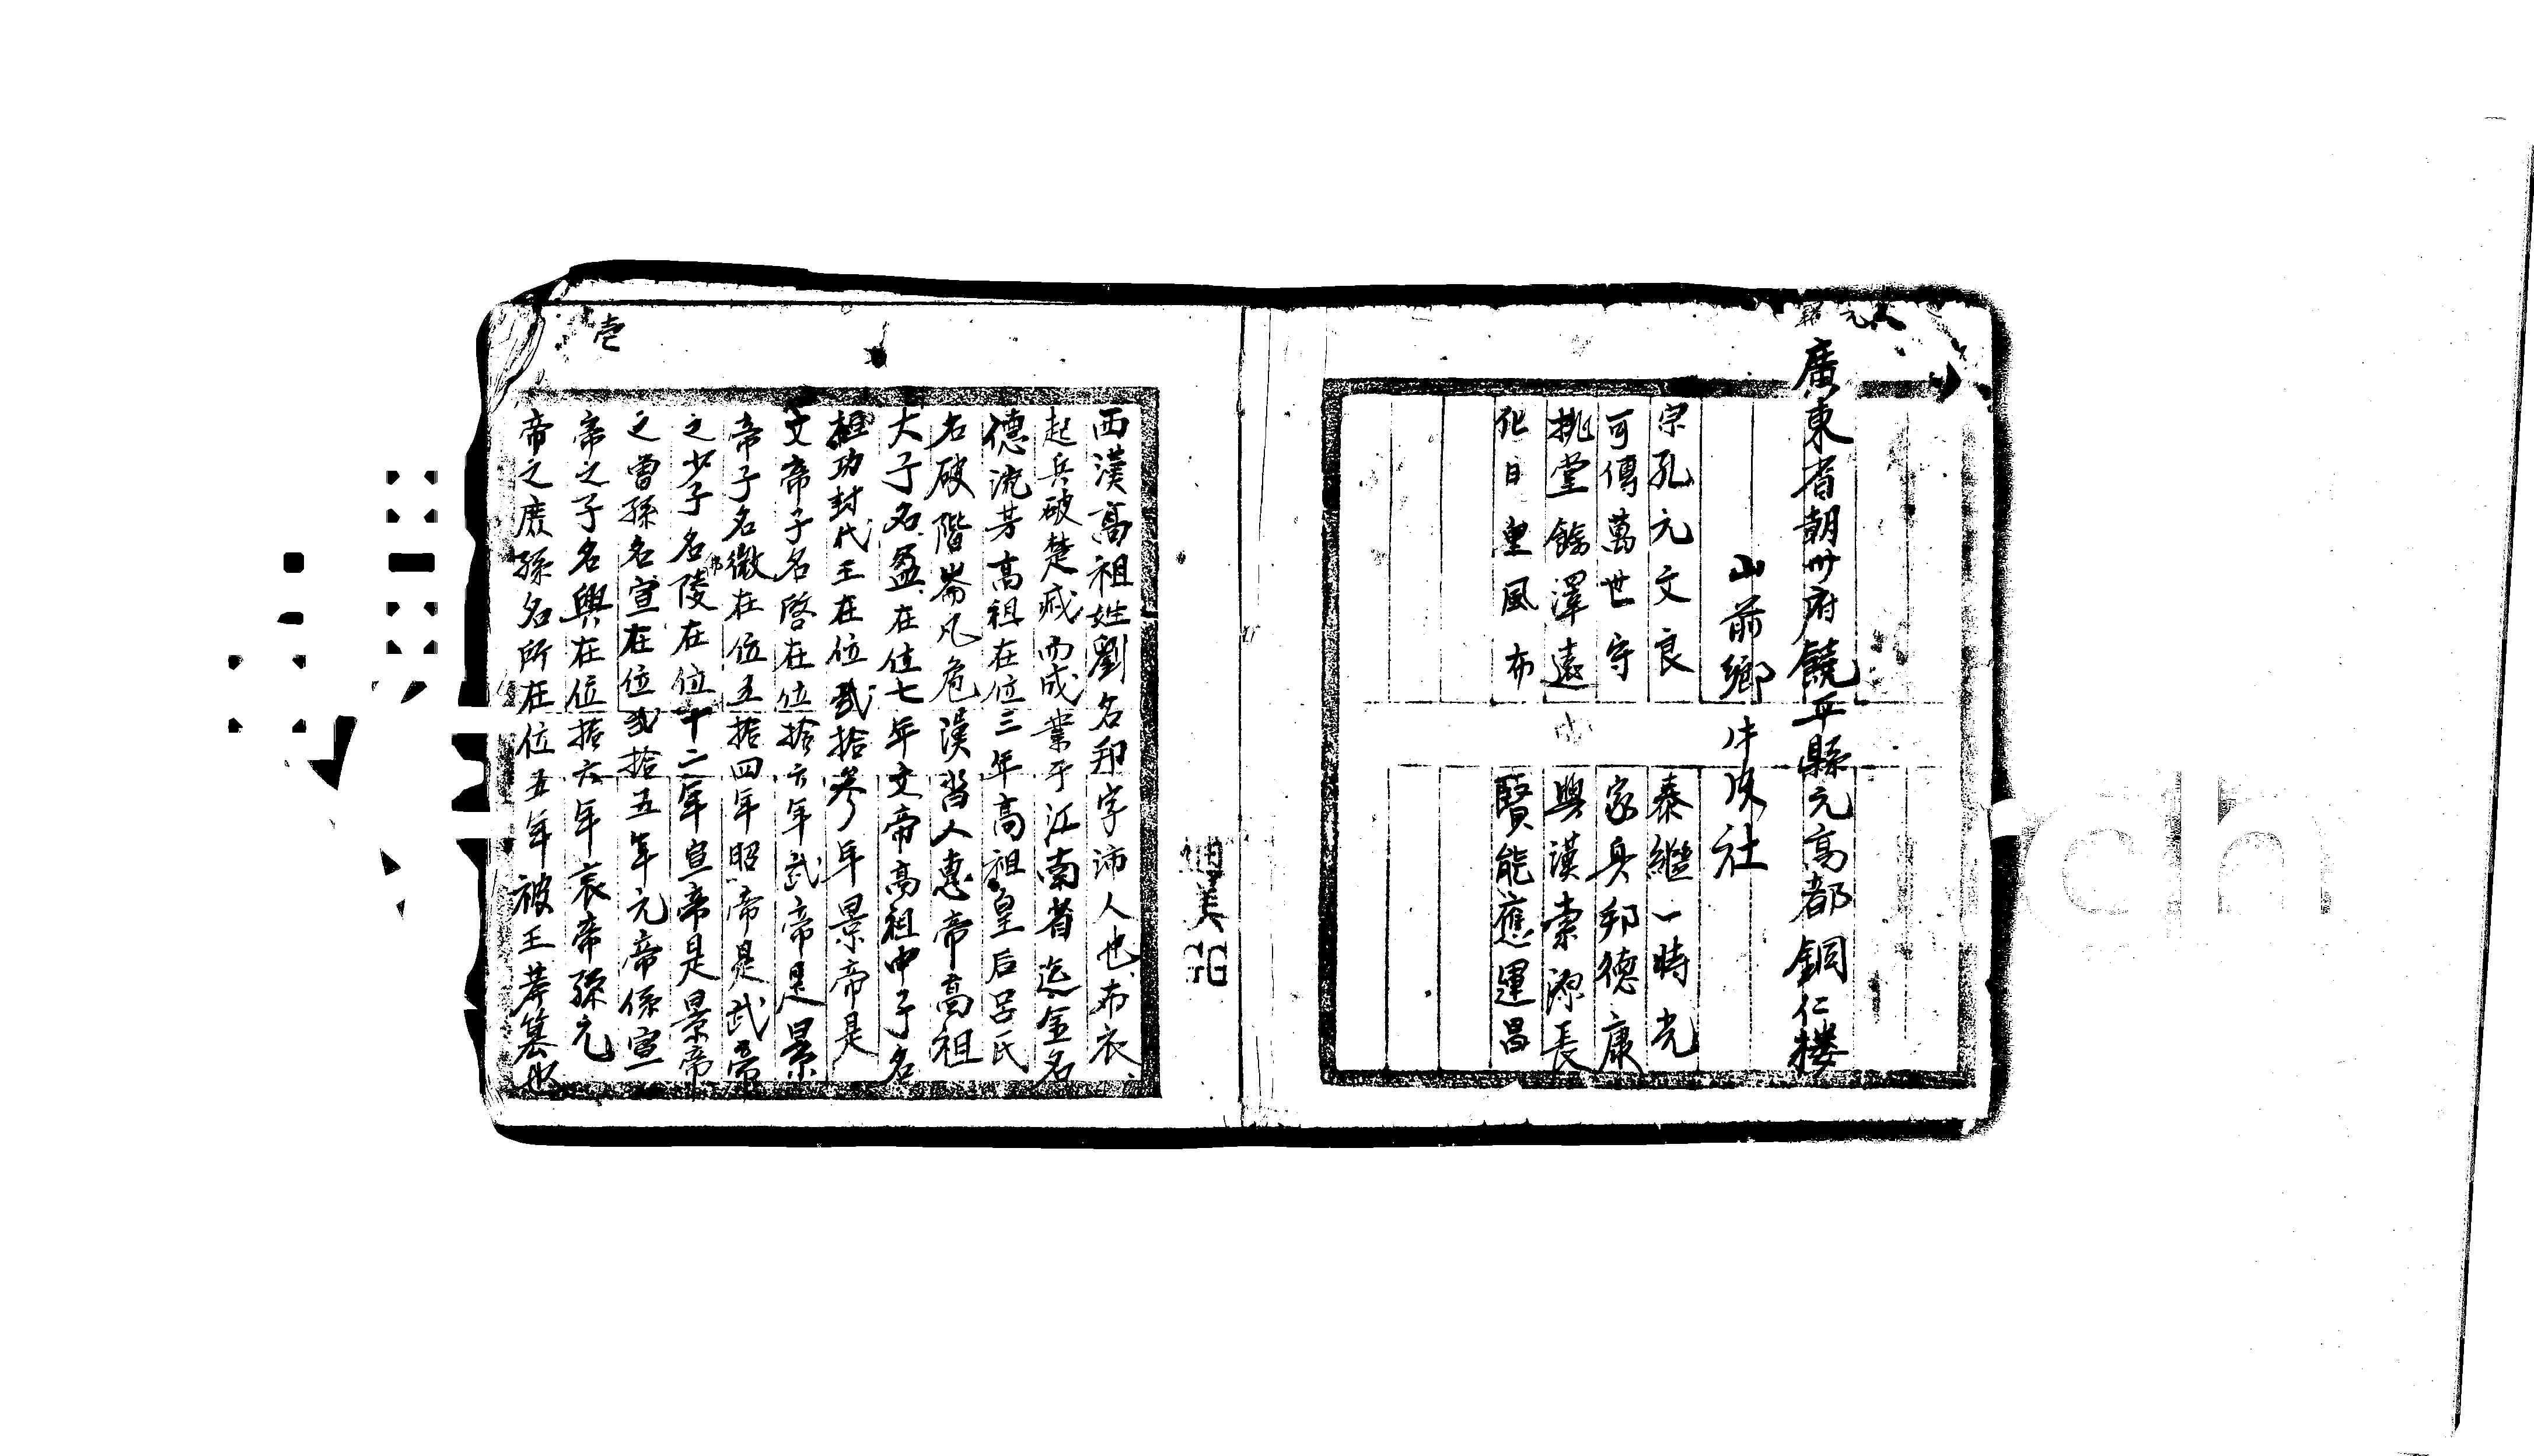 廣東省朝州府饒平縣元高都銅仁楼
山前鄉 社
宗孔元文良 泰繼一時光
可傳萬世守 家身邦德康
挑堂餘澤遠 興漢素源長
化日皇風布 賢能應運昌
壱
西漢高祖姓劉名邦字沛人也布衣
起兵破楚滅而成業于江南省迄金名
德流芳高祖在位三年高祖皇后呂氏
名破階崙凡危漢習人惠帝高祖
大子名盈在位七年文帝高祖中子名
桓功封代王在位贰拾參年景帝是
文帝子名啓在位拾六年武帝是景
帝子名微在位五拾四年昭帝是武帝
之少子名陵在位十二年宣帝是景帝
之曾孫名宣在位贰拾五年元帝係宣
帝之子名興在位拾六年哀帝孫元
帝之庶孫名所在位五年被王莽篡也